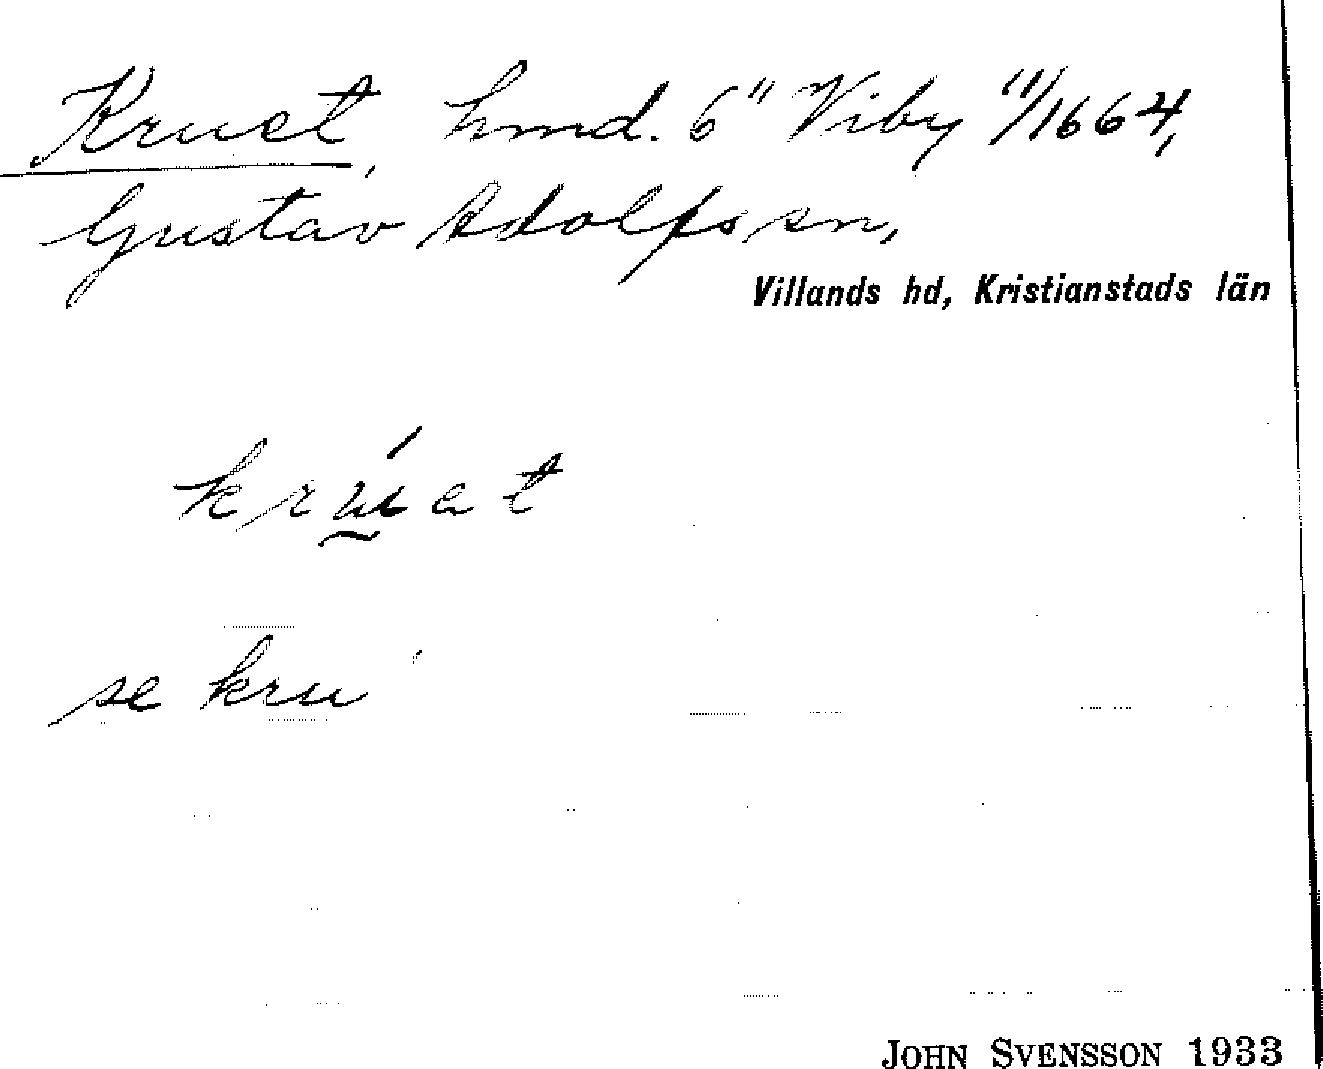 Kruet, hmd. 6" Viby 11/1664,
Gustav Adolfs sn,
Villands hd, Kristianstads län
krúat
se kru
JOHN SVENSSON 1933